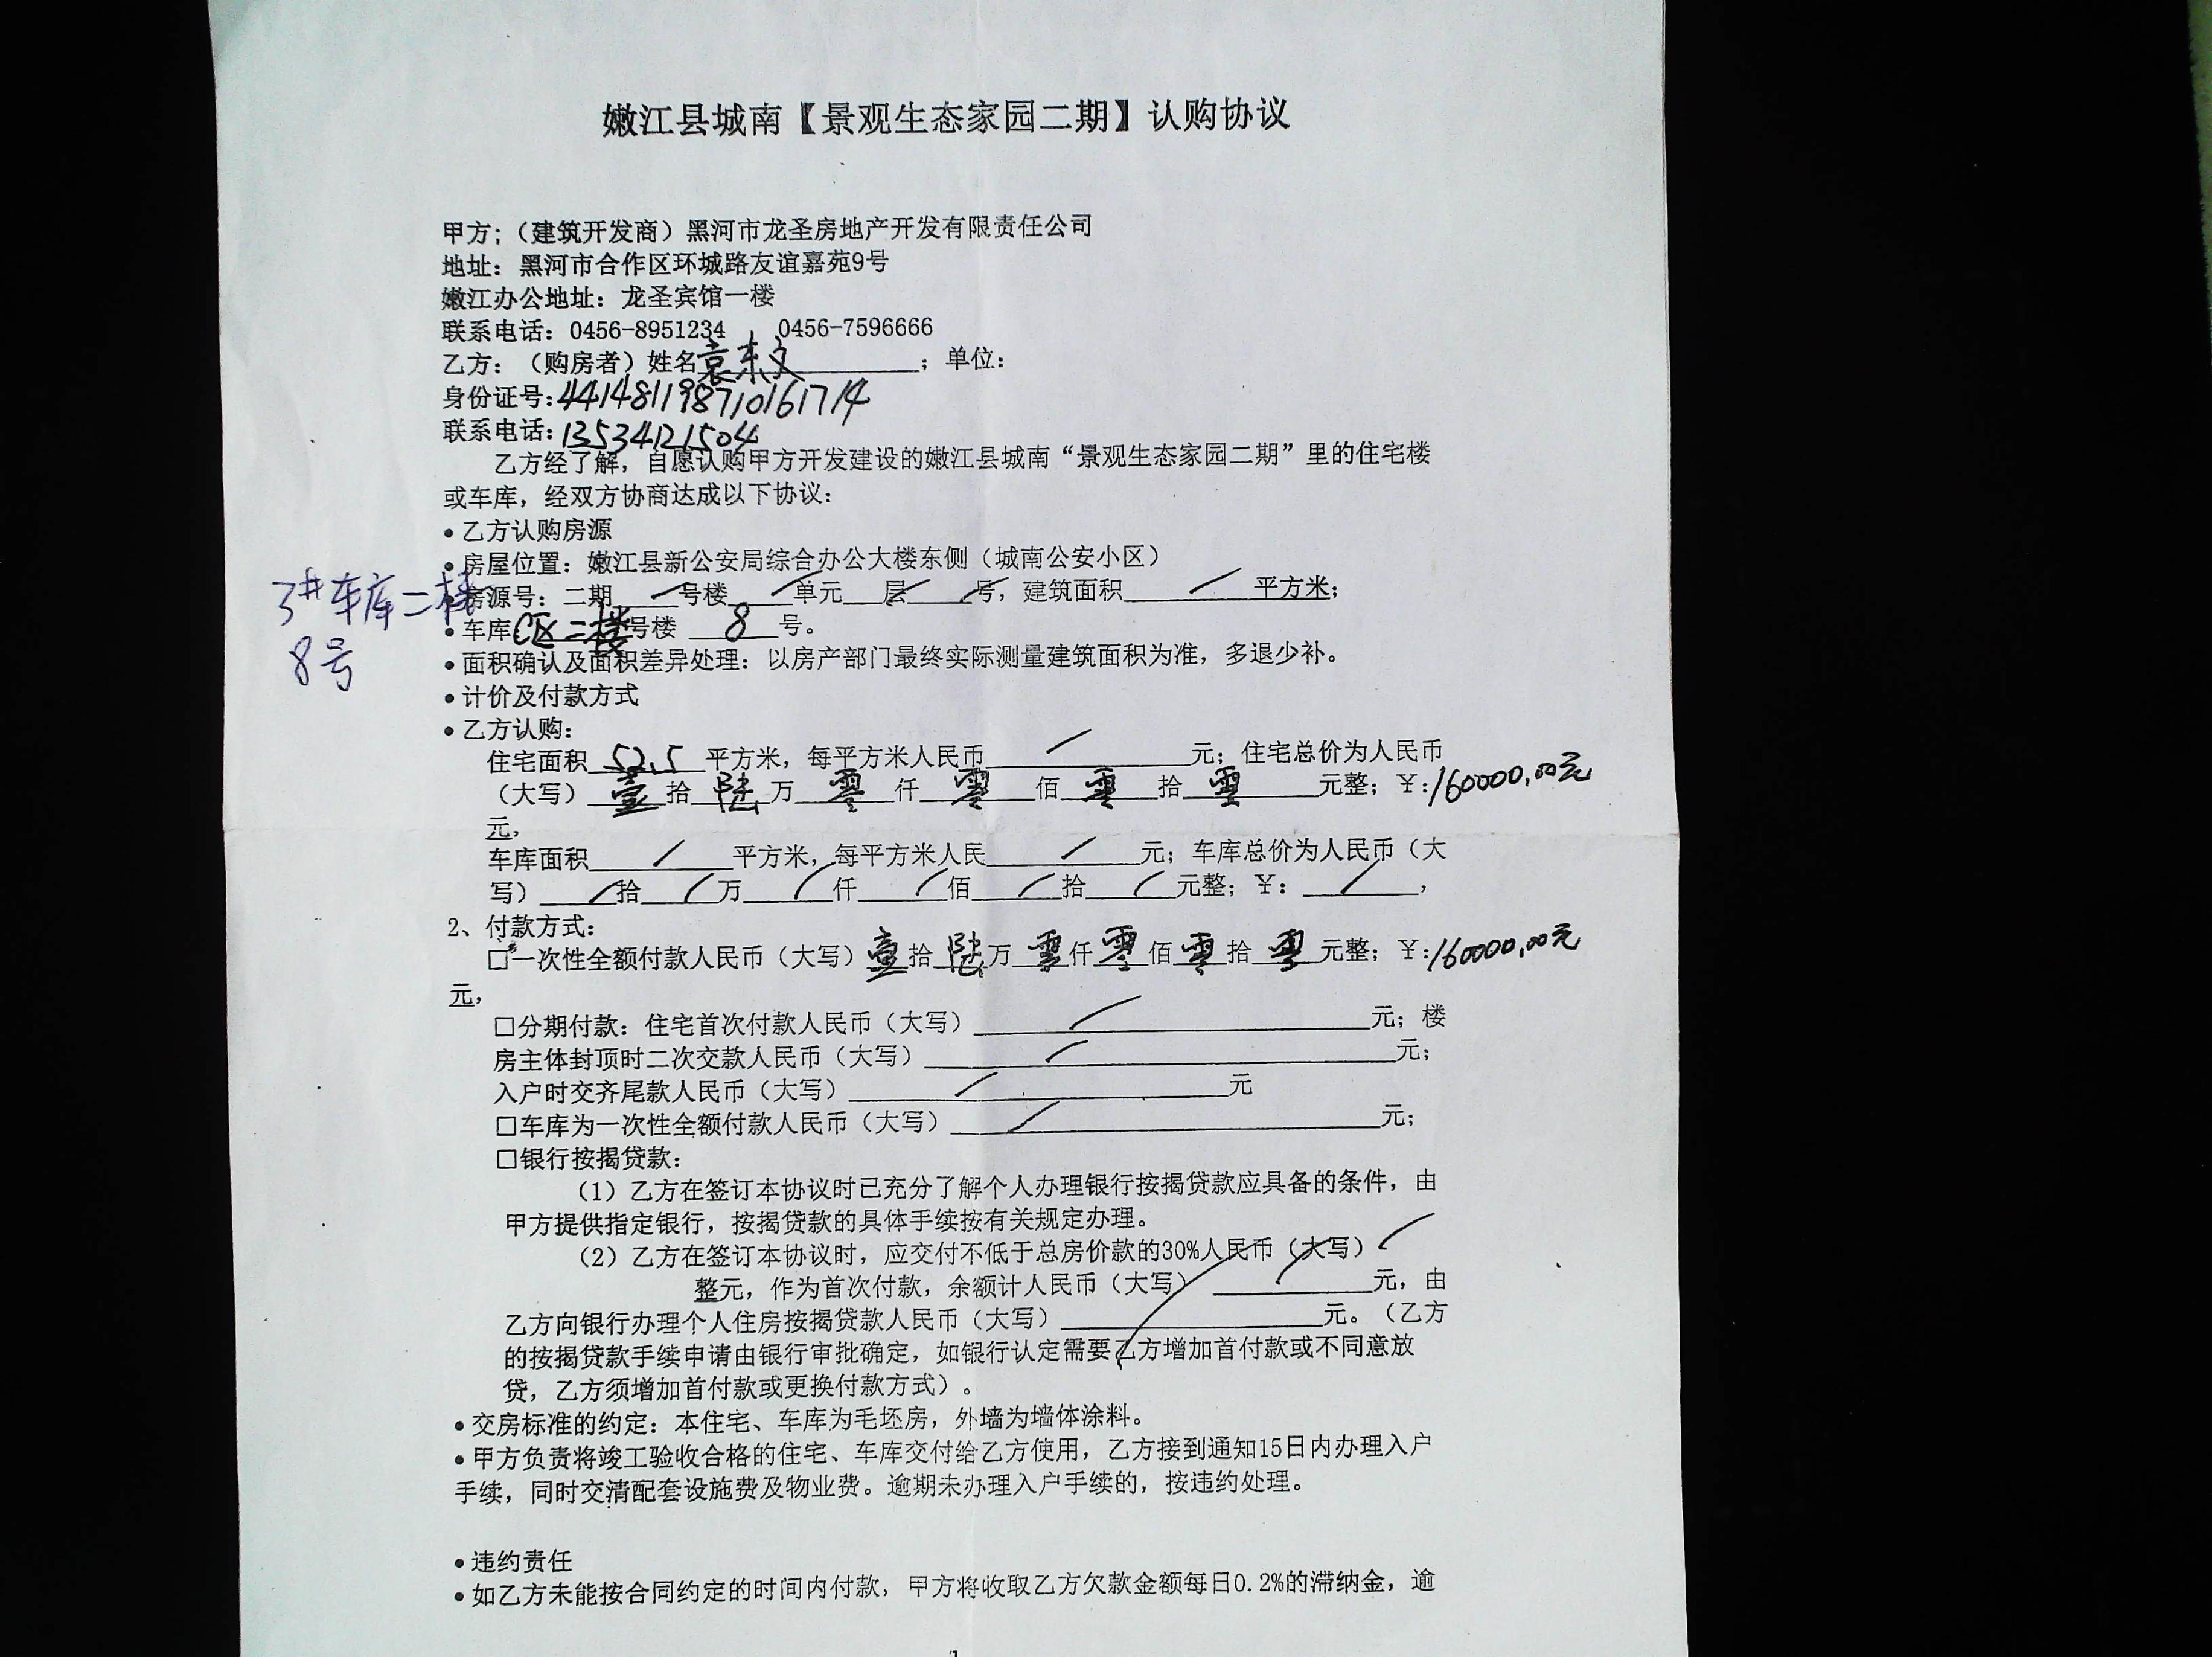 嫩江县城南【景观生态家园二期】认购协议
甲方；（建筑开发商）黑河市龙圣房地产开发有限责任公司
地址：黑河市合作区环城路友谊嘉苑9号
嫩江办公地址：龙圣宾馆一楼
联系电话：0456-8951234 0456-7596666
乙方：（购房者）姓名袁东文；单位：
身份证号：441481198710161714
联系电话：13534121504
乙方经了解，自愿认购甲方开发建设的嫩江县城南“景观生态家园二期”里的住宅楼
或车库，经双方协商达成以下协议：
•乙方认购房源
•房屋位置：嫩江县新公安局综合办公大楼东侧（城南公安小区）
3#车库二楼
8号
•房源号：二期 / 号楼 / 单元 / 层 / 号，建筑面积 / 平方米；
•车库C区二楼号楼 8 号。
•面积确认及面积差异处理：以房产部门最终实际测量建筑面积为准，多退少补。
•计价及付款方式
•乙方认购：
住宅面积 52.5 平方米，每平方米人民币 / 元；住宅总价为人民币
（大写）壹拾陆万零仟零佰零拾零元整；￥：160000.00元
元，
车库面积 / 平方米，每平方米人民 / 元；车库总价为人民币（大
写） / 拾 / 万 / 仟 / 佰 / 拾 / 元整；￥： / ，
2、付款方式：
□一次性全额付款人民币（大写）壹拾陆万零仟零佰零拾零元整；￥：160000.00元
元，
□分期付款：住宅首次付款人民币（大写） / 元；楼
房主体封顶时二次交款人民币（大写） / 元；
入户时交齐尾款人民币（大写） / 元
□车库为一次性全额付款人民币（大写） / 元；
□银行按揭贷款：
（1）乙方在签订本协议时已充分了解个人办理银行按揭贷款应具备的条件，由
甲方提供指定银行，按揭贷款的具体手续按有关规定办理。
（2）乙方在签订本协议时，应交付不低于总房价款的30%人民币（大写） /
整元，作为首次付款，余额计人民币（大写） / 元，由
乙方向银行办理个人住房按揭贷款人民币（大写） / 元。（乙方
的按揭贷款手续申请由银行审批确定，如银行认定需要乙方增加首付款或不同意放
贷，乙方须增加首付款或更换付款方式）。
•交房标准的约定：本住宅、车库为毛坯房，外墙为墙体涂料。
•甲方负责将竣工验收合格的住宅、车库交付给乙方使用，乙方接到通知15日内办理入户
手续，同时交清配套设施费及物业费。逾期未办理入户手续的，按违约处理。
•违约责任
•如乙方未能按合同约定的时间内付款，甲方将收取乙方欠款金额每日0.2%的滞纳金，逾
1